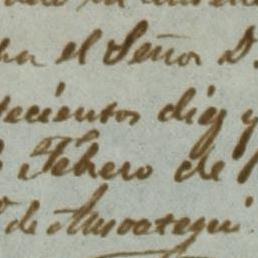 el Señor D.
tecientos diez y
Febero de
de Amoategui